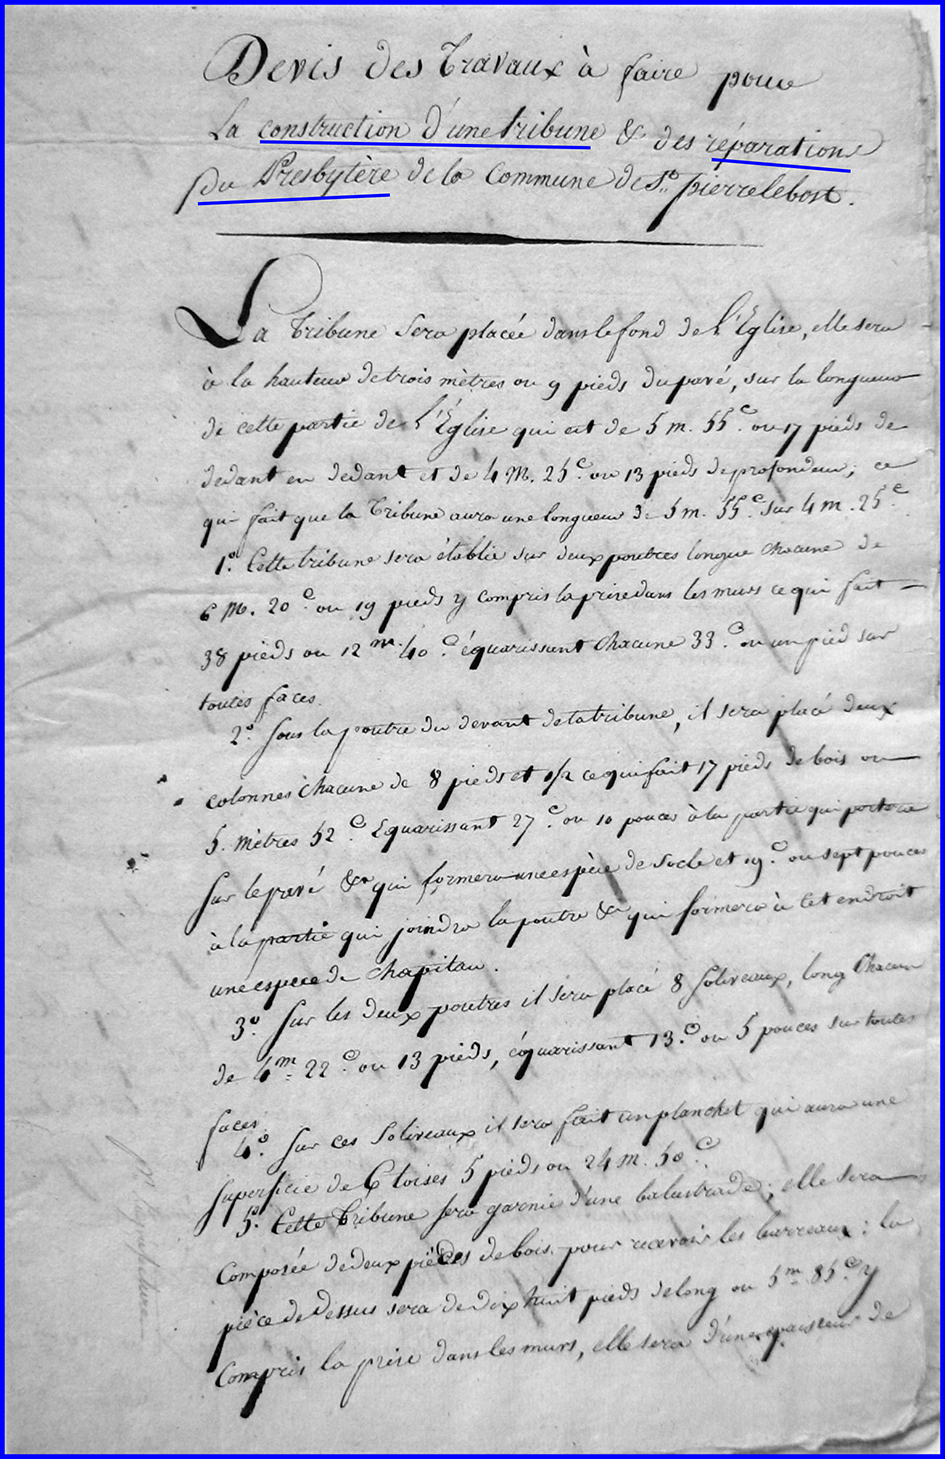 Devis des Travaux à faire pour
La construction d'une tribune & des réparations
Du Presbytère de la Commune de St. pierre le bost.
La Tribune Sera placée dans le fond de l'Eglise, elle sera
à la hauteur de trois mètres ou 9 pieds du pavé, sur la longueur
de cette partie de l'Église qui est de 5 m. 55 c. ou 17 pieds de
dedant en dedant et de 4 M. 25 c. ou 13 pieds de profondeur; ce
qui fait que la Tribune aura une longueur de 5 m. 55 c. sur 4 m. 25 c.
1.º Cette tribune sera établie sur deux poutres longue chacune de
6 M. 20 c. ou 19 pieds y compris la prise dans les murs ce qui fait
38 pieds ou 12 m. 40 c. équarissant chacune 33 c. ou un pied sur
toutes faces.
2.º Sous la poutre du devant de la tribune, il sera placé deux
colonnes chacune de 8 pieds et 1/2 ce qui fait 17 pieds de bois ou
5. mètres 52 c. Equarissant 27 c. ou 10 pouces à la partie qui portera
sur le pavé & qui formera une espèce de Socle et 19 c. ou sept pouces
à la partie qui joindra la poutre & qui formera à cet endroit
une espece de chapitau.
3.º Sur les deux poutres il sera placé 8 Soliveaux, long Chacun
de 4 m. 22 c. ou 13 pieds, équarissant 13 c. ou 5 pouces sur toutes
faces.
4.º Sur ces Soliveaux il sera fait un planchet qui aura une
superficie de 6 toises 5 pieds ou 24 m. 50 c.
5.º Cette Tribune sera garnie d'une balustrade; elle sera
Composée de deux pièces de bois pour recevoir les barreaux: la
pièce de Dessus sera de dix huit pieds de long ou 5 m. 85 c. y
Compris la prise dans les murs, elle sera d'une epaisseur de